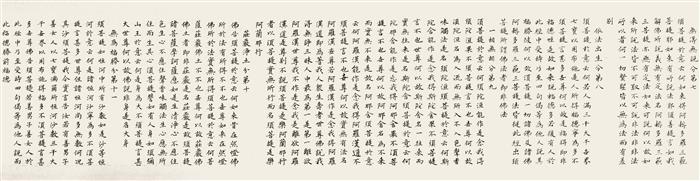 無得無說分第七
須菩提於意云何如來得阿耨多羅三藐三
菩提耶如來有所說法耶須菩提言如我
解佛所說義無有定法名阿耨多羅三藐三
菩提亦無有定法如來可說何以故如來
所說法皆不可取不可說非法非非法
所以者何一切賢聖皆以無為法而有差
別
依法出生分第八
須菩提於意云何若人滿三千大千世界
七寶以用布施是人所得福德寧為多不
須菩提言甚多世尊何以故是福德即非
福德性是故如來說福德多若復有人於
此經中受持乃至四句偈等為他人說其
福勝彼何以故須菩提一切諸佛及諸佛
阿耨多羅三藐三菩提法皆從此經出須
菩提所謂佛法者即非佛法
一相無相分第九
須菩提於意云何須陀洹能作是念我得
須陀洹果不須菩提言不也世尊何以故
須陀洹名為入流而無所入不入色聲香
味觸法是名須陀洹須菩提於意云何斯
陀含能作是念我得斯陀含果不須菩提
言不也世尊何以故斯陀含名一往來而
實無往來是名斯陀含須菩提於意云何
阿那含能作是念我得阿那含果不須菩
提言不也世尊何以故阿那含名為不來
而實無不來是故名阿那含須菩提於意
云何阿羅漢能作是念我得阿羅漢道不
須菩提言不也世尊何以故實無有法名
阿羅漢世尊若阿羅漢作是念我得阿羅
漢道即為著我人眾生壽者世尊佛說我
得無諍三昧人中最為第一是第一離欲
阿羅漢我不作是念我是離欲阿羅漢世
尊我若作是念我得阿羅漢道世尊則不
說須菩提是樂阿蘭那行者以須菩提實
無所行而名須菩提是樂阿蘭那行
莊嚴淨土分第十
佛告須菩提於意云何如來昔在然燈佛
所於法有所得不世尊如來在然燈佛所
於法實無所得須菩提於意云何菩薩莊
嚴佛土不不也世尊何以故莊嚴佛土者
即非莊嚴是名莊嚴是故須菩提諸菩薩
摩訶薩應如是生清淨心不應住色生心
不應住聲香味觸法生心應無所住而生
其心須菩提譬如有人身如須彌山王於
意云何是身為大不須菩提言甚大世尊
何以故佛說非身是名大身
無為福勝分第十一
須菩提如恒河中所有沙數如是沙等恒
河於意云何是諸恒河沙寧為多不須菩
提言甚多世尊但諸恒河尚多無數何況
其沙須菩提我今實言告汝若有善男子
善女人以七寶滿爾所恒河沙數三千大
千世界以用布施得福多不須菩提言甚
多世尊佛告須菩提若善男子善女人於
此經中乃至受持四句偈等為他人說而
此福德勝前福德